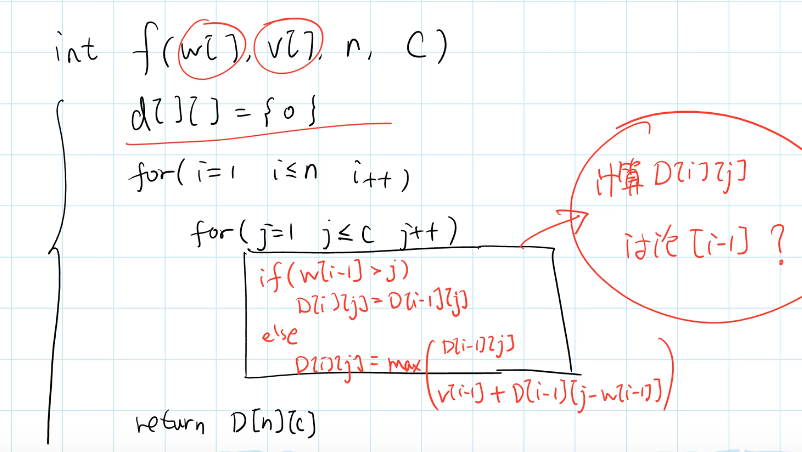 int f(w[], v[], n, C)
d[][] = {0}
for(i=1 i≤n i++)
for(j=1 j≤c j++)
if(w[i-1]>j)
D[i][j]=D[i-1][j]
else
D[i][j]=max(D[i-1][j]
v[i-1]+D[i-1][j-w[i-1]])
return D[n][c]
计算D[i][j]
讨论[i-1]?